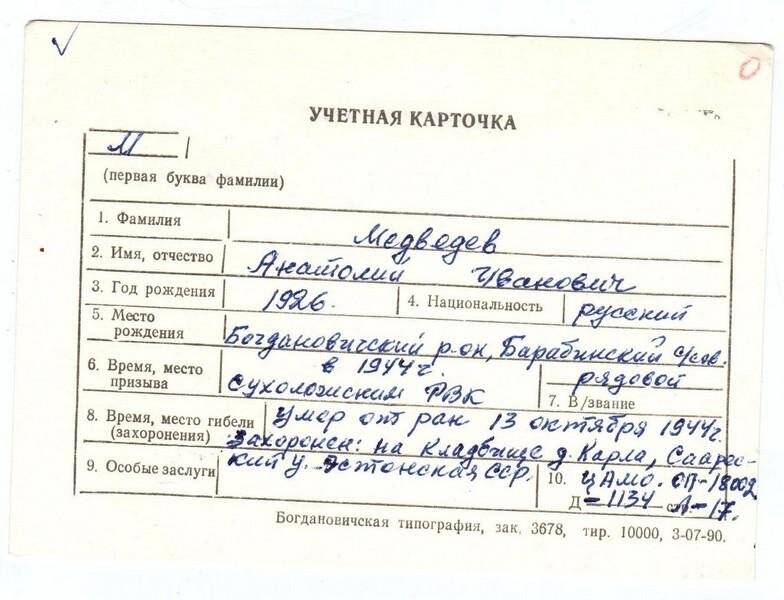 УЧЕТНАЯ КАРТОЧКА
М
(первая буква фамилии)
1. Фамилия Медведев
2. Имя, отчество Анатолий Иванович
3. Год рождения 1926. 4. Национальность русский
5. Место рождения Богдановичский р-он, Барабинский с/сов.
6. Время, место призыва в 1944г. Сухоложским РВК 7. В/звание рядовой
8. Время, место гибели (захоронения) Умер от ран 13 октября 1944г.
Захоронен: на кладбище д. Карла, Саарес-
9. Особые заслуги кий у. Эстонская ССР. 10. ЦАМО. ОП-18002
Д-1134 Л-17.
Богдановичская типография, зак. 3678, тир. 10000, 3-07-90.